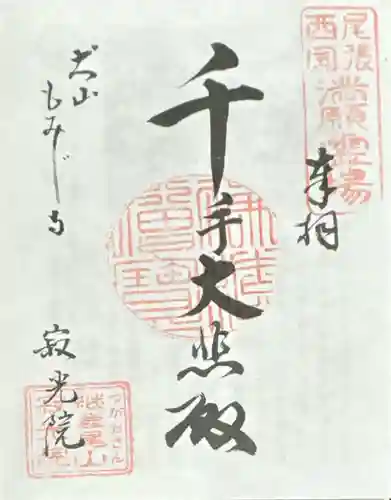 尾張
西国
満願霊場
奉拝
千手大悲殿
犬山
もみじ寺
寂光院
つがおさん
継鹿尾山
寂光院